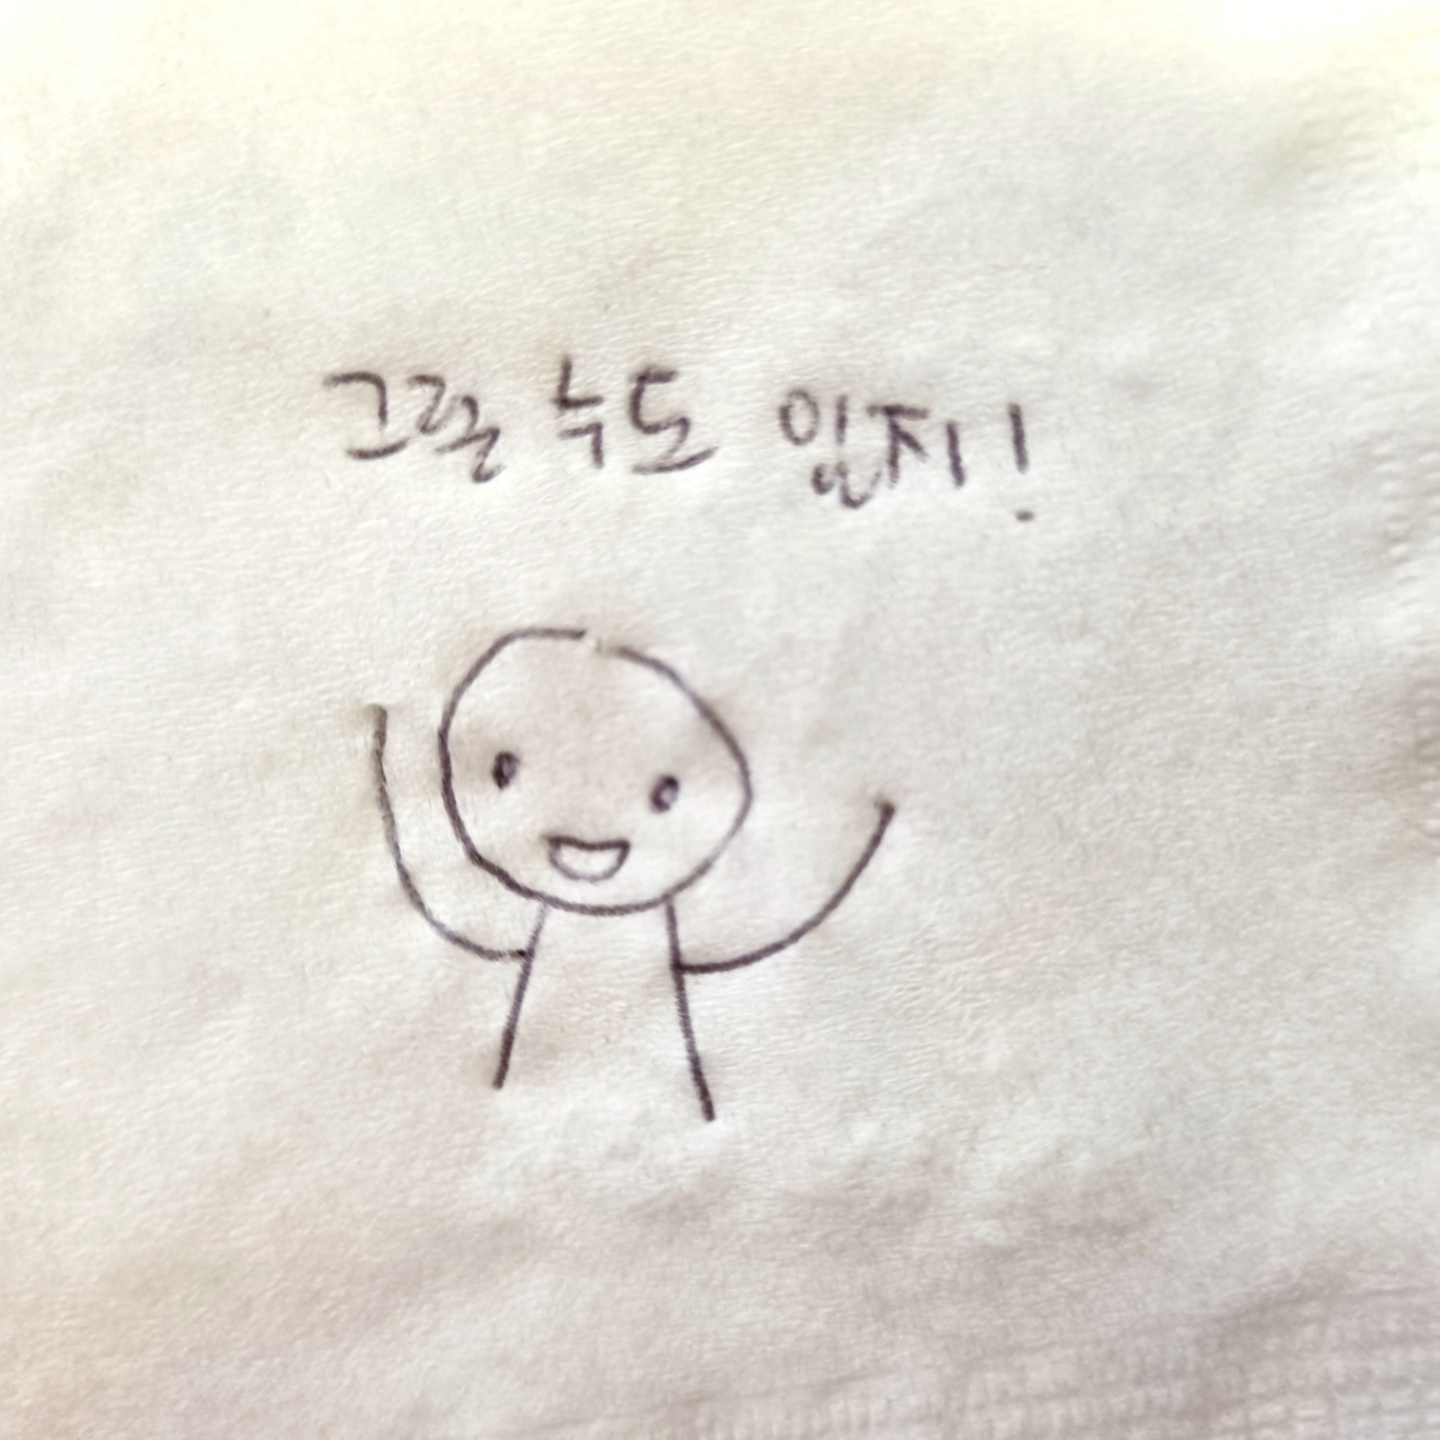 그럴 수도 있지!